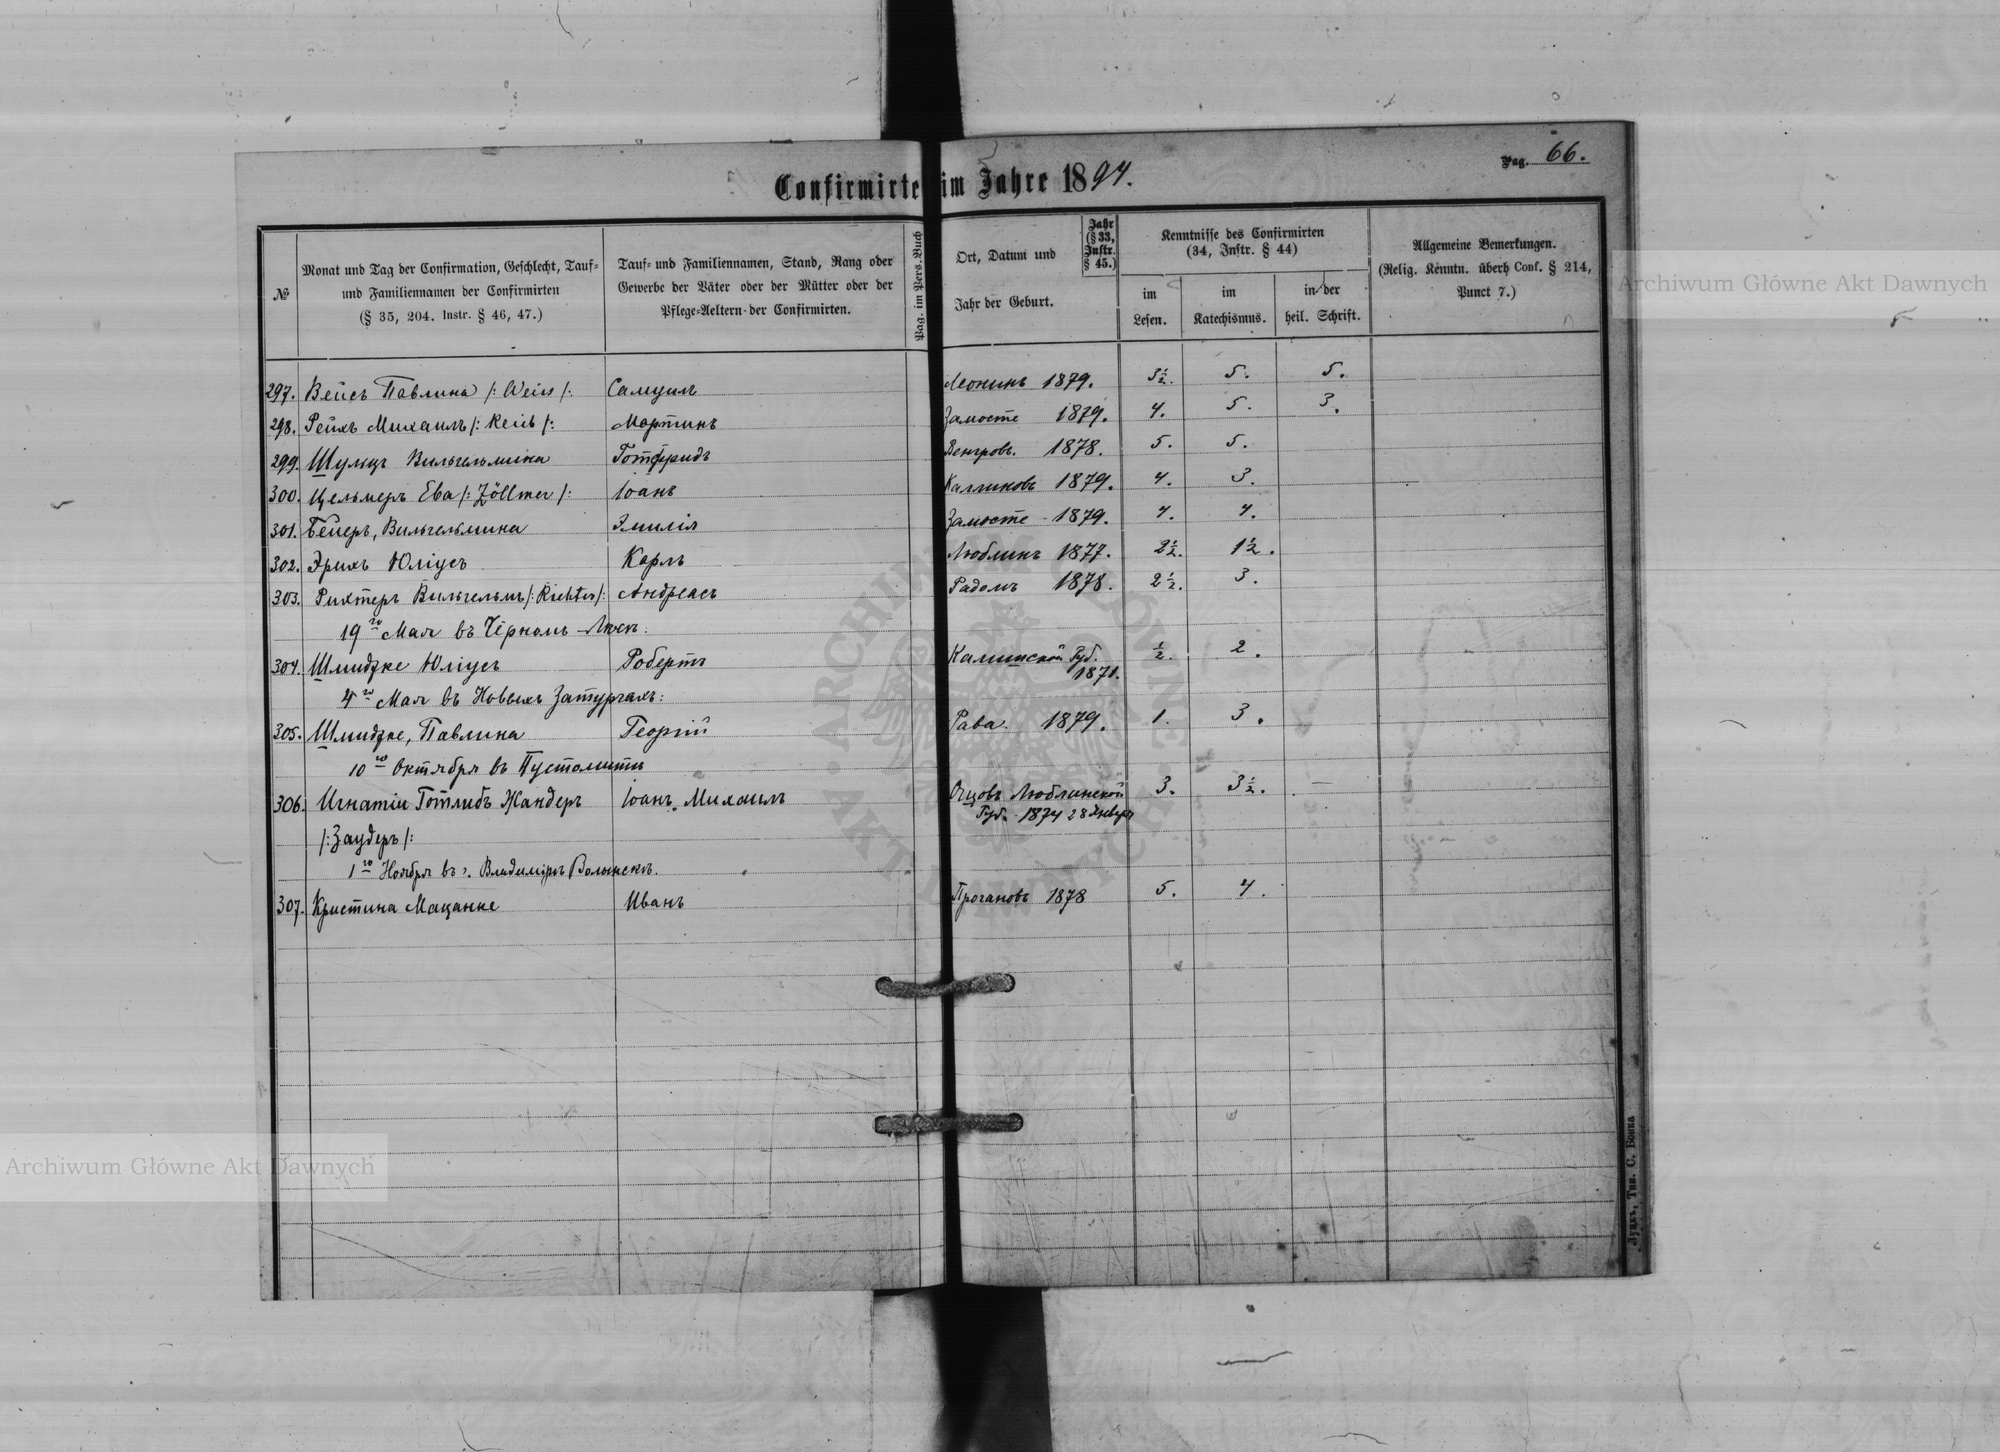 Pag. 66.
Confirmirte im Jahre 1894.
№
Monat und Tag der Confirmation, Geschlecht, Tauf-
und Familiennamen der Confirmirten
(§ 35, 204. Instr. § 46, 47.)
Tauf- und Familiennamen, Stand, Rang oder
Gewerbe der Väter oder der Mütter oder der
Pflege-Aeltern der Confirmirten.
Pag. im Pers.-Buch
Ort, Datum und
Jahr der Geburt.
Jahr
(§ 33,
Instr.
§ 45.)
Kenntnisse des Confirmirten
(34, Instr. § 44)
im
Lesen.
im
Katechismus.
in der
heil. Schrift.
Allgemeine Bemerkungen.
(Relig. Kenntn. überh Conf. § 214,
Punct 7.)
297. Вейсъ Павлина /: Weiss /: Самуилъ 1879. 3½. 5. 5.
298. Рейхъ Михаилъ /: /: Мартинъ Замостье 1879. 4. 5. 3.
299. Шульцъ Вильгельмина Готфридъ Венгровъ. 1878. 5. 5.
300. Цельмеръ Ева /: Zöllmer /: Іоанъ 1879. 4. 3.
301. Бейеръ, Вильгельмина Эмилія Замостье - 1879. 4. 4.
302. Эрихъ Юліусъ Карлъ Люблинъ 1877. 2½. 1½.
303. Рихтеръ Вильгельмъ /: Richter /: Андреасъ Радомъ 1878. 2½. 3.
19го Мая въ Чёрномъ-Лѣсѣ:
304. Шмидтке Юліусъ Робертъ Калишской Губ. ½. 2.
1871.
4го Мая въ Новыхъ Затурцахъ:
305. Шмидтке, Павлина Георгій Рава. 1879. 1. 3.
10го Октября въ Пустомыти
306. Игнатій Готлибъ Жандеръ Іоанъ. Михаилъ Люблинской 3. 3½. —
Губ. 1874 28 Января
/: Заудеръ /:
1го Ноября въ г. Владимірѣ Волынскѣ.
307. Кристина Мацанке Иванъ 1878 5. 4.
Луцкъ, Тип. С. Бонка
Archiwum Główne Akt Dawnych
Archiwum Główne Akt Dawnych
ARCHIWUM GŁÓWNE AKT DAWNYCH